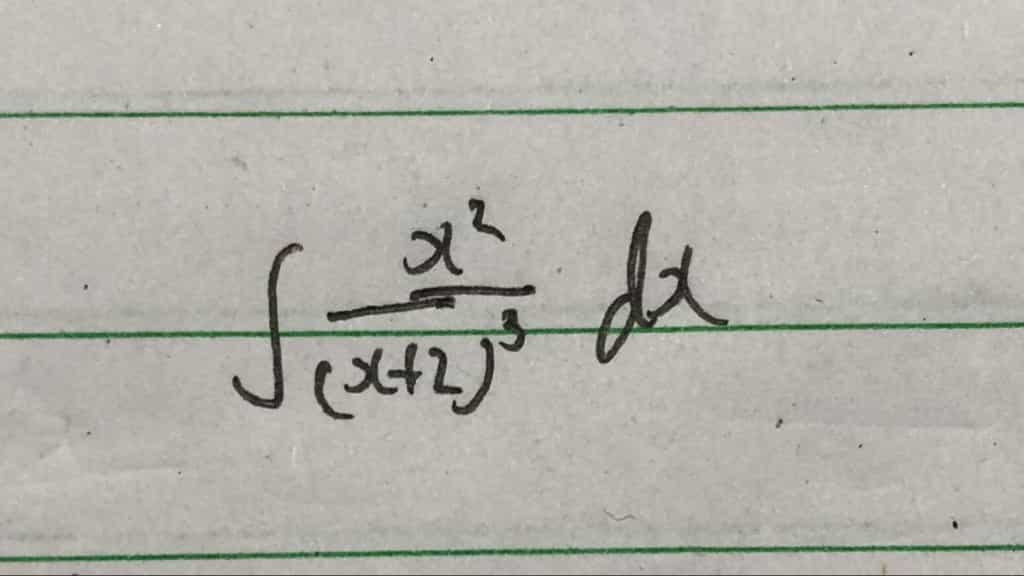 ∫ x²/(x+2)³ dx